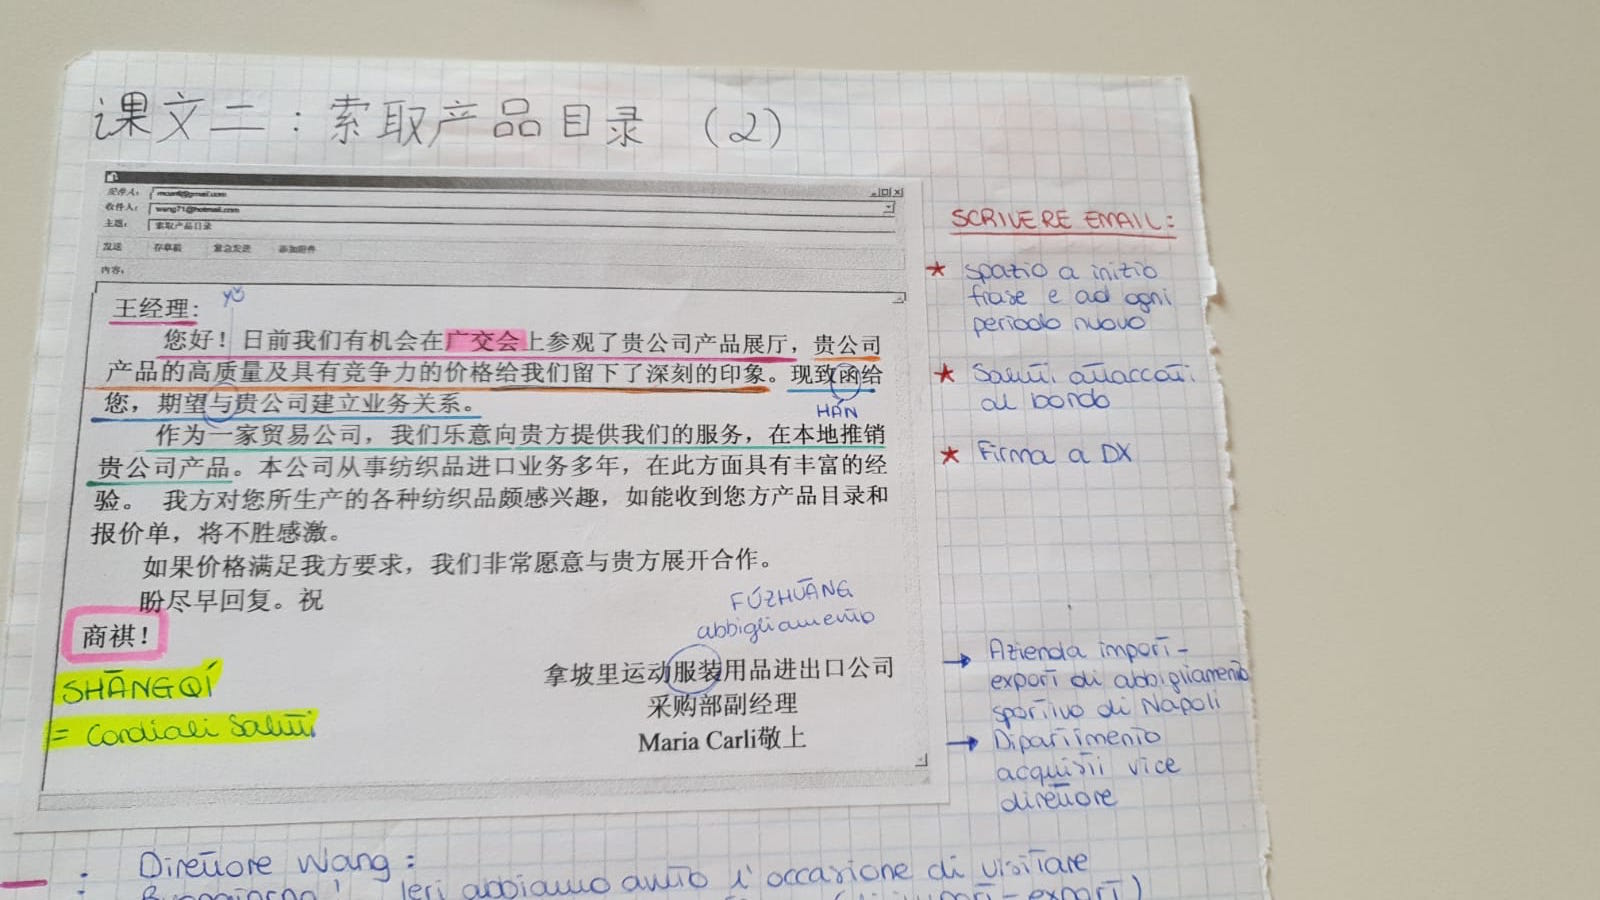 课文二：索取产品目录 (2)
发件人：
收件人： wang71@hotmail.com
主题： 索取产品目录
发送 存草稿 紧急发送 添加附件
内容：
王经理：
yǔ
您好！日前我们有机会在广交会上参观了贵公司产品展厅，贵公司
产品的高质量及具有竞争力的价格给我们留下了深刻的印象。现致函给
您，期望与贵公司建立业务关系。
HÁN
作为一家贸易公司，我们乐意向贵方提供我们的服务，在本地推销
贵公司产品。本公司从事纺织品进口业务多年，在此方面具有丰富的经
验。 我方对您所生产的各种纺织品颇感兴趣，如能收到您方产品目录和
报价单，将不胜感激。
如果价格满足我方要求，我们非常愿意与贵方展开合作。
盼尽早回复。祝
商祺！
SHĀNGQÍ
= Cordiali Saluti
FÚZHUĀNG
abbigliamento
拿坡里运动服装用品进出口公司
采购部副经理
Maria Carli敬上
SCRIVERE EMAIL:
★ spazio a inizio
frase e ad ogni
periodo nuovo
★ Saluti attaccati
al bordo
★ Firma a DX
→ Azienda import-
export di abbigliamento
sportivo di Napoli
→ Dipartimento
acquisti vice
direttore
Direttore Wang:
Buongiorno! Ieri abbiamo avuto l'occasione di visitare
import-export)